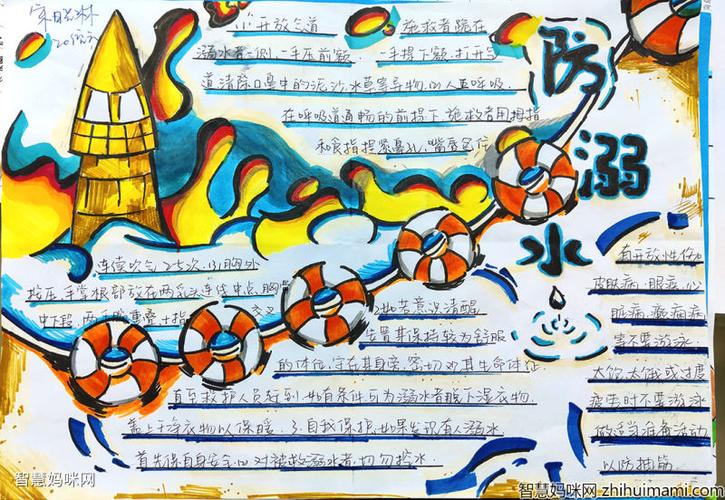 防溺水
(1)开放气道 施救者跪在
溺水者一侧,一手压前额 一手提下颏,打开气
道,清除口鼻中的泥沙、水草等异物,(2)人工呼吸
在呼吸道通畅的前提下,施救者用拇指
和食指捏紧鼻孔,嘴唇包住
连续吹气 2次,(3)胸外
按压,手掌根部放在两乳头连线中点,胸骨
中下段,两手 重叠,十指 交叉
意识清醒
其保持较为舒服
的体位,守在其身旁,密切观其生命体征
直至救护人员赶到,如有条件,可为溺水者脱下湿衣物,
盖上干净衣物以保暖 3、自我保护,如果发现有人溺水
首先保自身安全,(2)对被救溺水者,切勿控水
有开放性伤
皮肤病,眼疾,心
脏病,癫痫病
等不要游泳
太饱,太饿或过度
疲劳时不要游泳
做适当准备活动
以防抽筋
智慧妈咪网
智慧妈咪网 zhihuimami.com